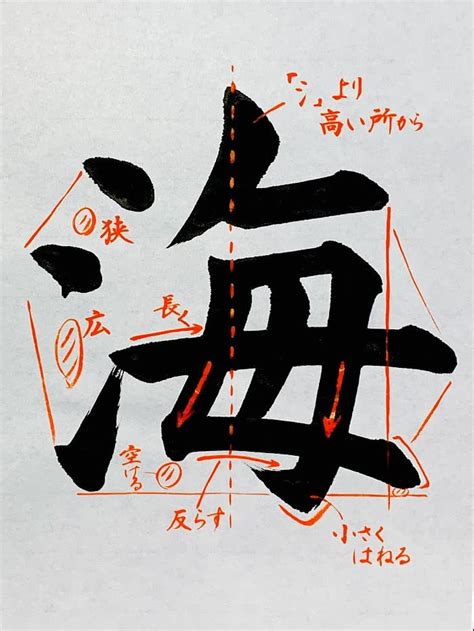 海
「氵」より
高い所から
狭
広
長く
空ける
反らす
小さく
はねる